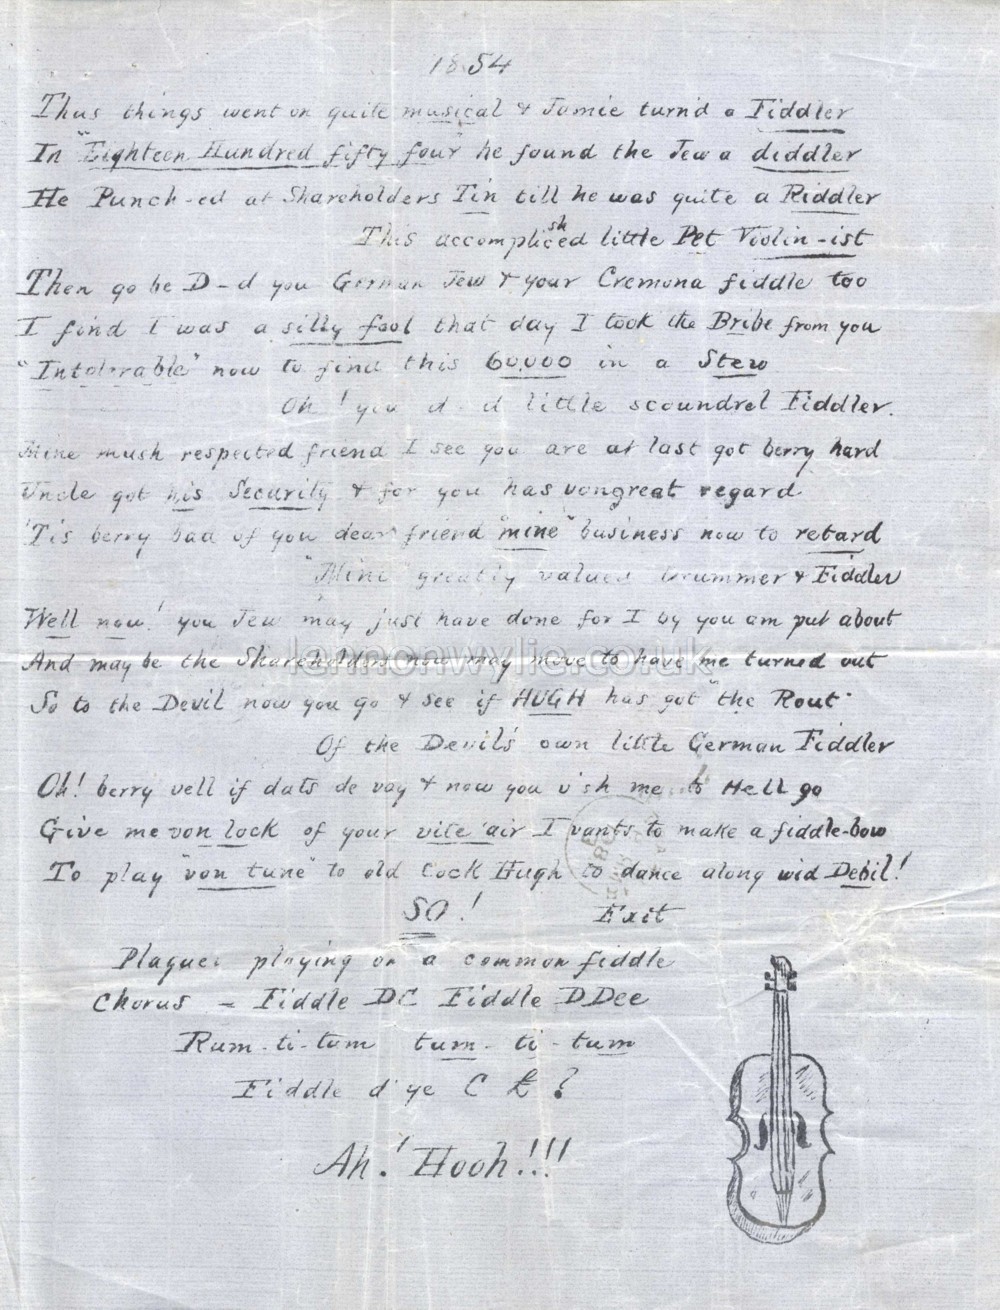 1854
Thus things went on quite musical & Jamie turn'd a Fiddler
In "Eighteen Hundred fifty four" he found the Jew a diddler
He Punch-ed at Shareholders Tin till he was quite a Riddler
This accompliced little Pet Violin-ist
sh
Then go be D-d you German Jew & your Cremona fiddle too
I find I was a silly fool that day I took the Bribe from you
"Intolerable" now to find this 60,000 in a Stew
Oh! you d-d little scoundrel Fiddler.
Mine mush respected friend I see you are at last got berry hard
Uncle got his Security & for you has von great regard
'Tis berry bad of you dear friend "mine" business now to retard
"Mine" greatly valued Drummer & Fiddler
Well now! you Jew may just have done for I by you am put about
And may be the Shareholders now may move to have me turned out
So to the Devil now you go & see if HUGH has got "the Rout"
Of the Devil's own little German Fiddler
Oh! berry vell if dats de vay & now you vish me to Hell go
Give me von lock of your vite 'air I vants to make a fiddle-bow
To play "von tune" to old Cock Hugh to dance along wid Debil!
SO! Exit
playing on a common fiddle
Chorus - Fiddle DE Fiddle DDee
Rum-ti-tum tum-ti-tum
Fiddle d'ye C
Ah! Hooh!!!
lennonwylie.co.uk